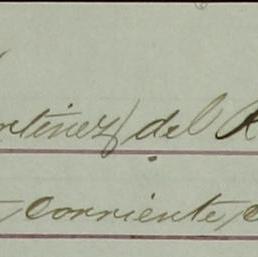 rtinez del R
corriente, c